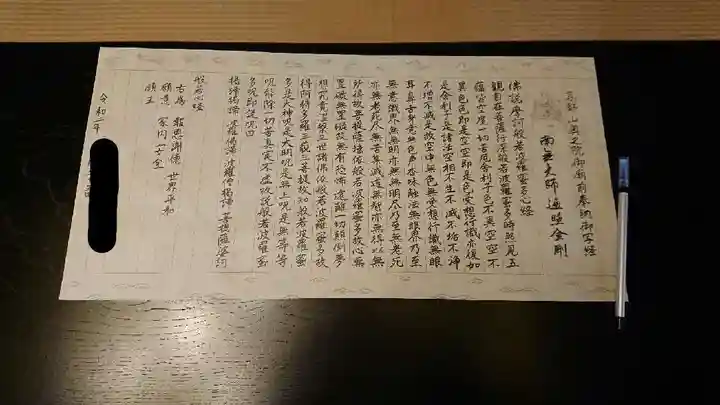 高野山奥之院御廟前奉納御写経
南無大師遍照金剛
佛説摩訶般若波羅蜜多心経
観自在菩薩行深般若波羅蜜多時照見五
蘊皆空度一切苦厄舎利子色不異空空不
異色色即是空空即是色受想行識亦復如
是舎利子是諸法空相不生不滅不垢不浄
不増不減是故空中無色無受想行識無眼
耳鼻舌身意無色声香味触法無眼界乃至
無意識界無無明亦無無明尽乃至無老死
亦無老死尽無苦集滅道無智亦無得以無
所得故菩提薩埵依般若波羅蜜多故心無
罣礙無罣礙故無有恐怖遠離一切顛倒夢
想究竟涅槃三世諸佛依般若波羅蜜多故
得阿耨多羅三藐三菩提故知般若波羅蜜
多是大神呪是大明呪是無上呪是無等等
呪能除一切苦真実不虚故説般若波羅蜜
多呪即説呪曰
羯諦羯諦 波羅羯諦 波羅僧羯諦 菩提薩婆訶
般若心経
右為 報恩謝徳 世界平和
願意 家内安全
願主
令和二年